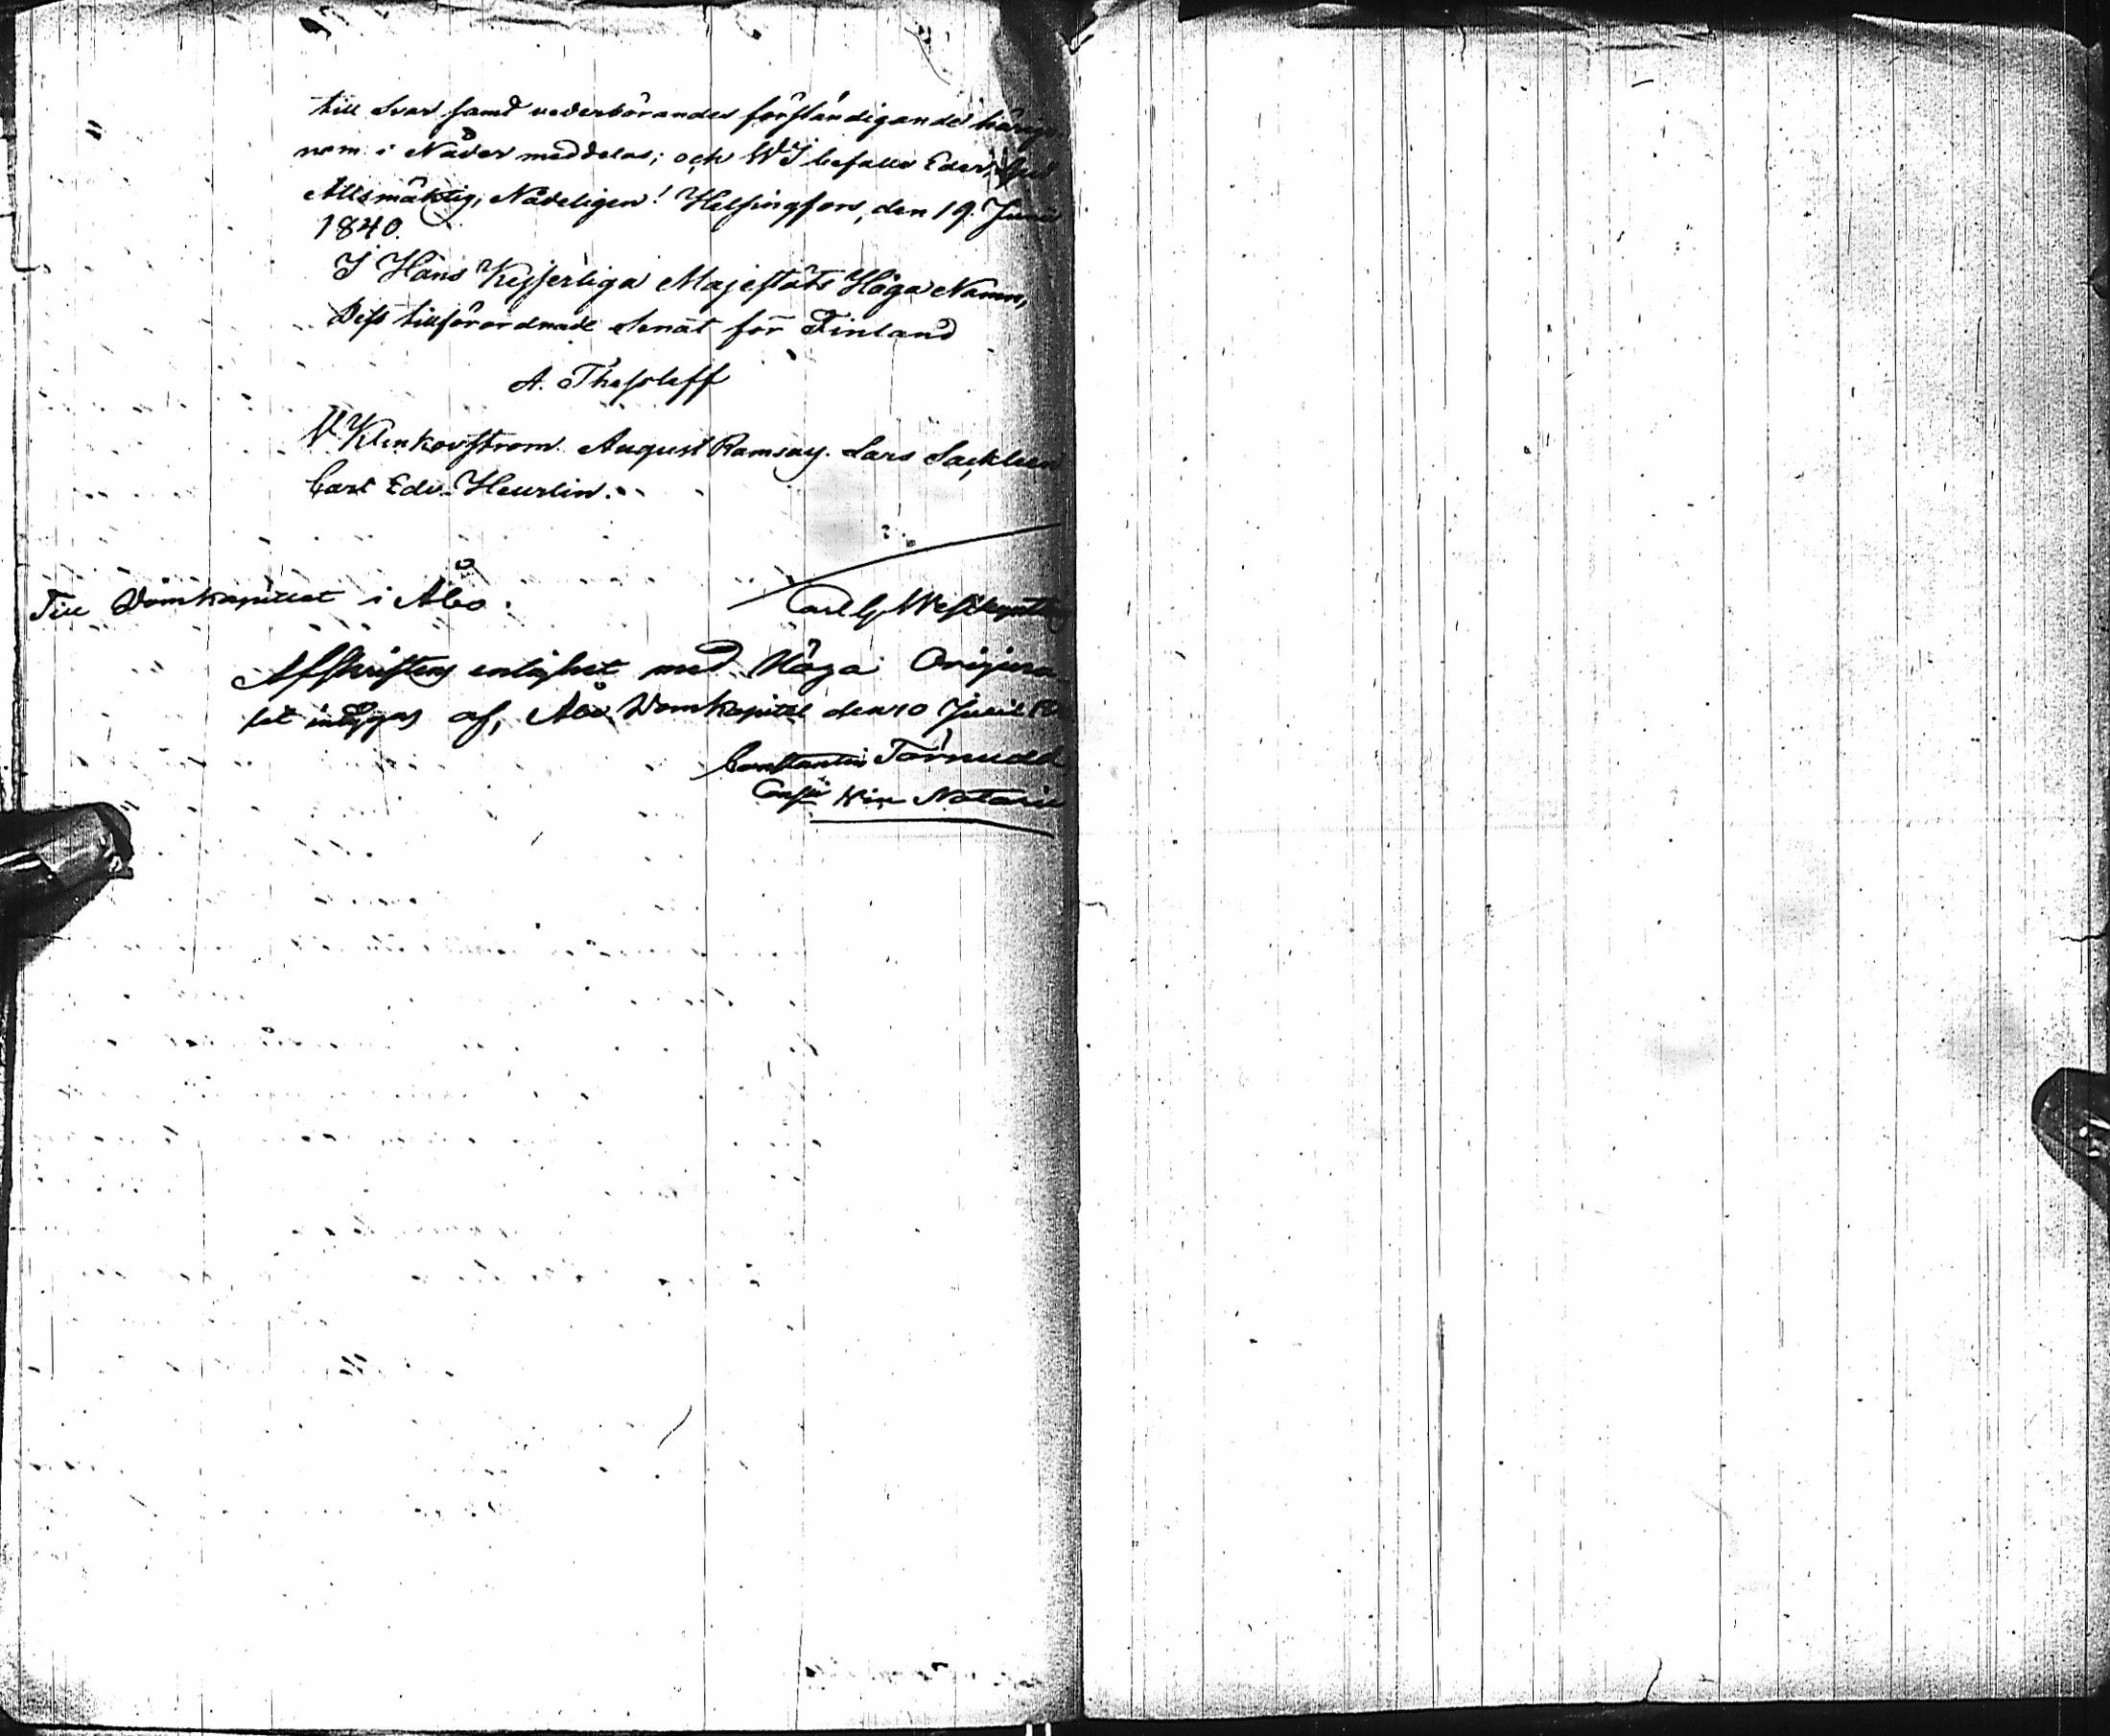 till svar samt vederbörandes förständigande härige
nom i Nåder meddelas; och WJ befalle Eder, Gud
Allsmäktig, Nådeligen! Helsingfors, den 19. Junii
1840.
I Hans Kejserliga Majestäts Höga Namn,
Dess tillförordnade Senat för Finland
A. Thesleff
V Klinkovström. August Ramsay. Lars Sacklen
Carl Edv. Heurlin.
Till Domkapitlet i Åbo.
Carl G
Afskriftens enlighet med Höga Origina
let intygas af, Åbo Domkapitel den 10 Julii
Constantin Törnudd
Vice Notarie